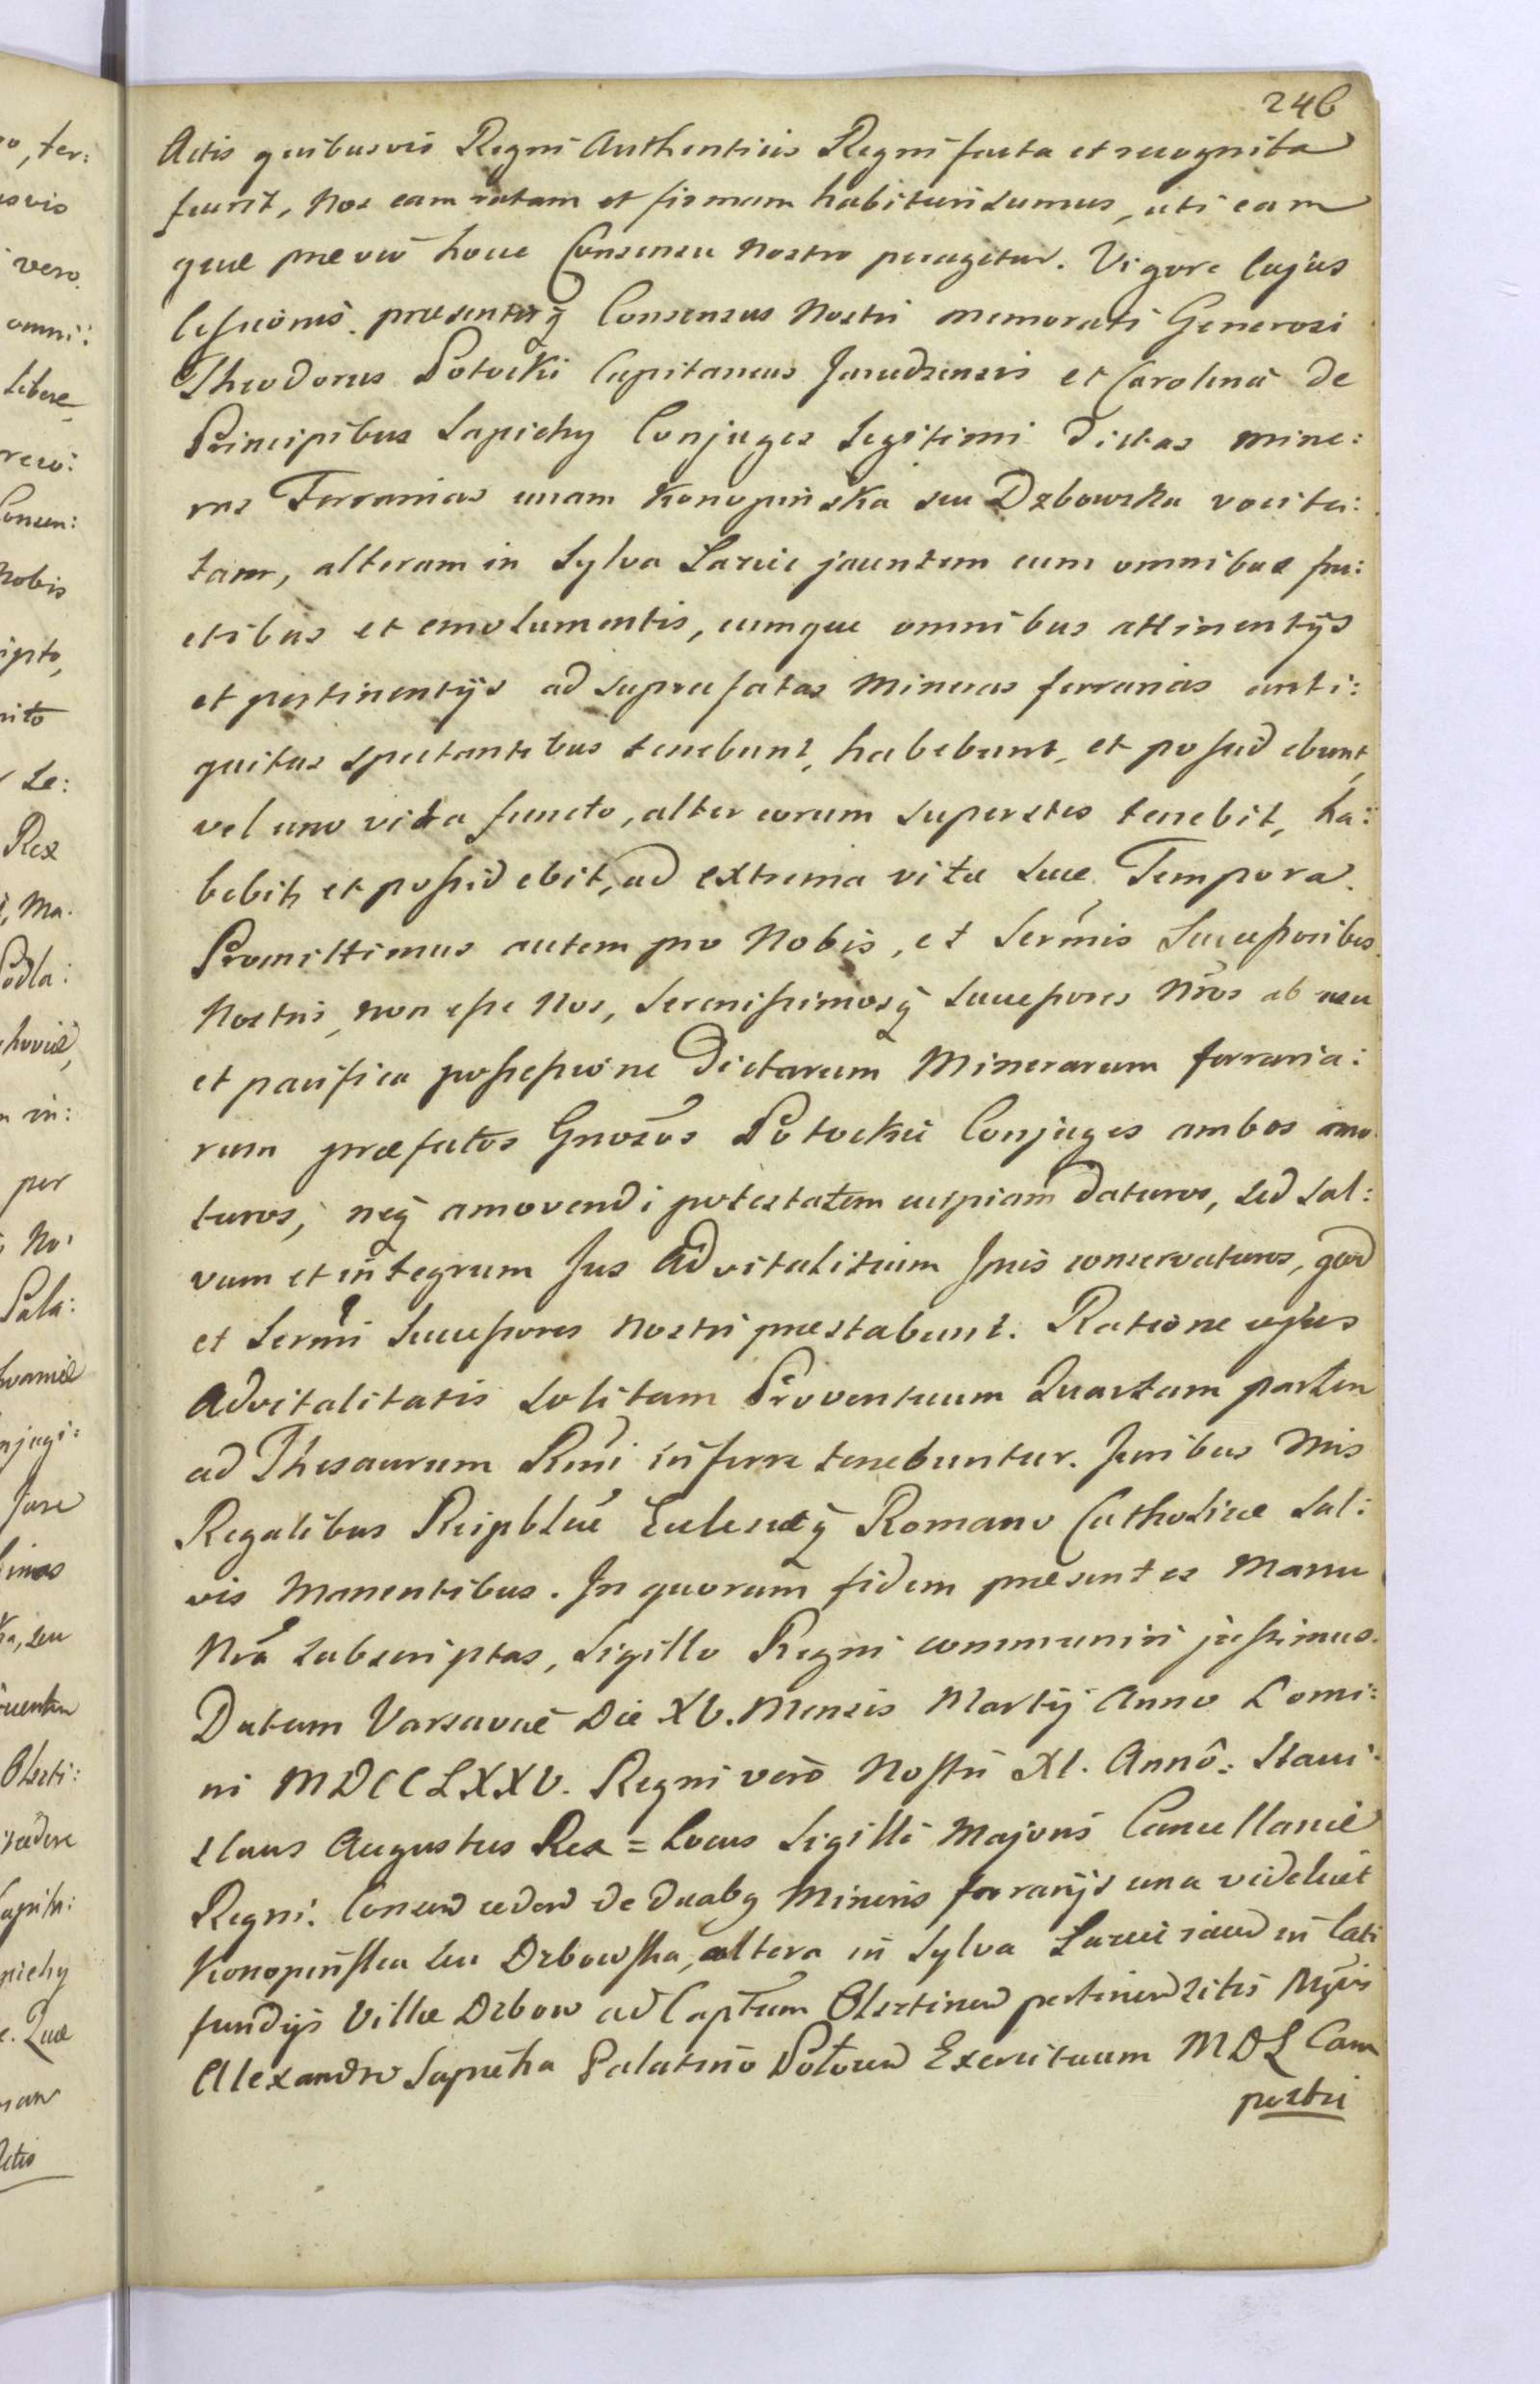 246
Actis quibusvis Regni Authenticis Regni facta et recognita
fuerit, Nos eam ratam et firmam habituri sumus, uti eam
quæ prævio hocce Consensu Nostro peragetur. Vigore cujus
Cessionis præsentisq̃ Consensus Nostri memorati Generosi
Theodorus Potocki Capitaneus et Carolina de
Principibus Sapiehy Conjuges Legitimi dictas mine:
ras Ferrarias unam Konopinska seu Dzbowska vocita:
tam, alteram in Sylva jacentem cum omnibus fru:
ctibus et emolumentis, cumque omnibus attinentijs
et pertinentijs ad suprafatas Mineras ferrarias anti:
quitus spectantibus tenebunt, habebunt, et possidebunt,
vel uno vita functo, alter eorum superstes tenebit, ha:
bebit, et possidebit, ad extrema vitæ suæ Tempora.
Promittimus autem pro Nobis, et Sermis Successoribus
Nostris, non esse Nos, Serenissimosq̃ Successores Nros ab usu
et pacifica possessione dictarum Minerarum ferraria:
rum præfatos Gnosos Potockie Conjuges ambos amo
turos, neq̃ amovendi potestatem cuipiam daturos, sed sal:
vum et integrum Jus Advitalitium Ipsis conservaturos, qod
et Sermi Successores Nostri præstabunt. Ratione cujus
Advitalitatis solitam Proventuum Quartam partem
ad Thesaurum Regni inferre tenebuntur. Juribus Nris
Regalibus Reipblcæ Eclesiæq̃ Romano Catholicæ sal:
vis manentibus. In quorum fidem præsentes Manu
Nra subscriptas, Sigillo Regni communiri jussimus.
Datum Varsaviæ Die XV. Mensis Martij Anno Domi:
ni MDCCLXXV. Regni vero Nostri XI. Anno: Stani:
slaus Augustus Rex = Locus Sigilli Majoris Cancellariæ
Regni. Consens cedend de duabq Mineris ferrarijs una videlicet
Konopinska seu Dzbowska, altera in Sylva jacen in lati
fundijs Villæ Dzbow ad Captum Olsztinen pertinen sitis Mgcis
Alexandro Sapieha Palatino Polocen Exercituum MDL Cam
pestri